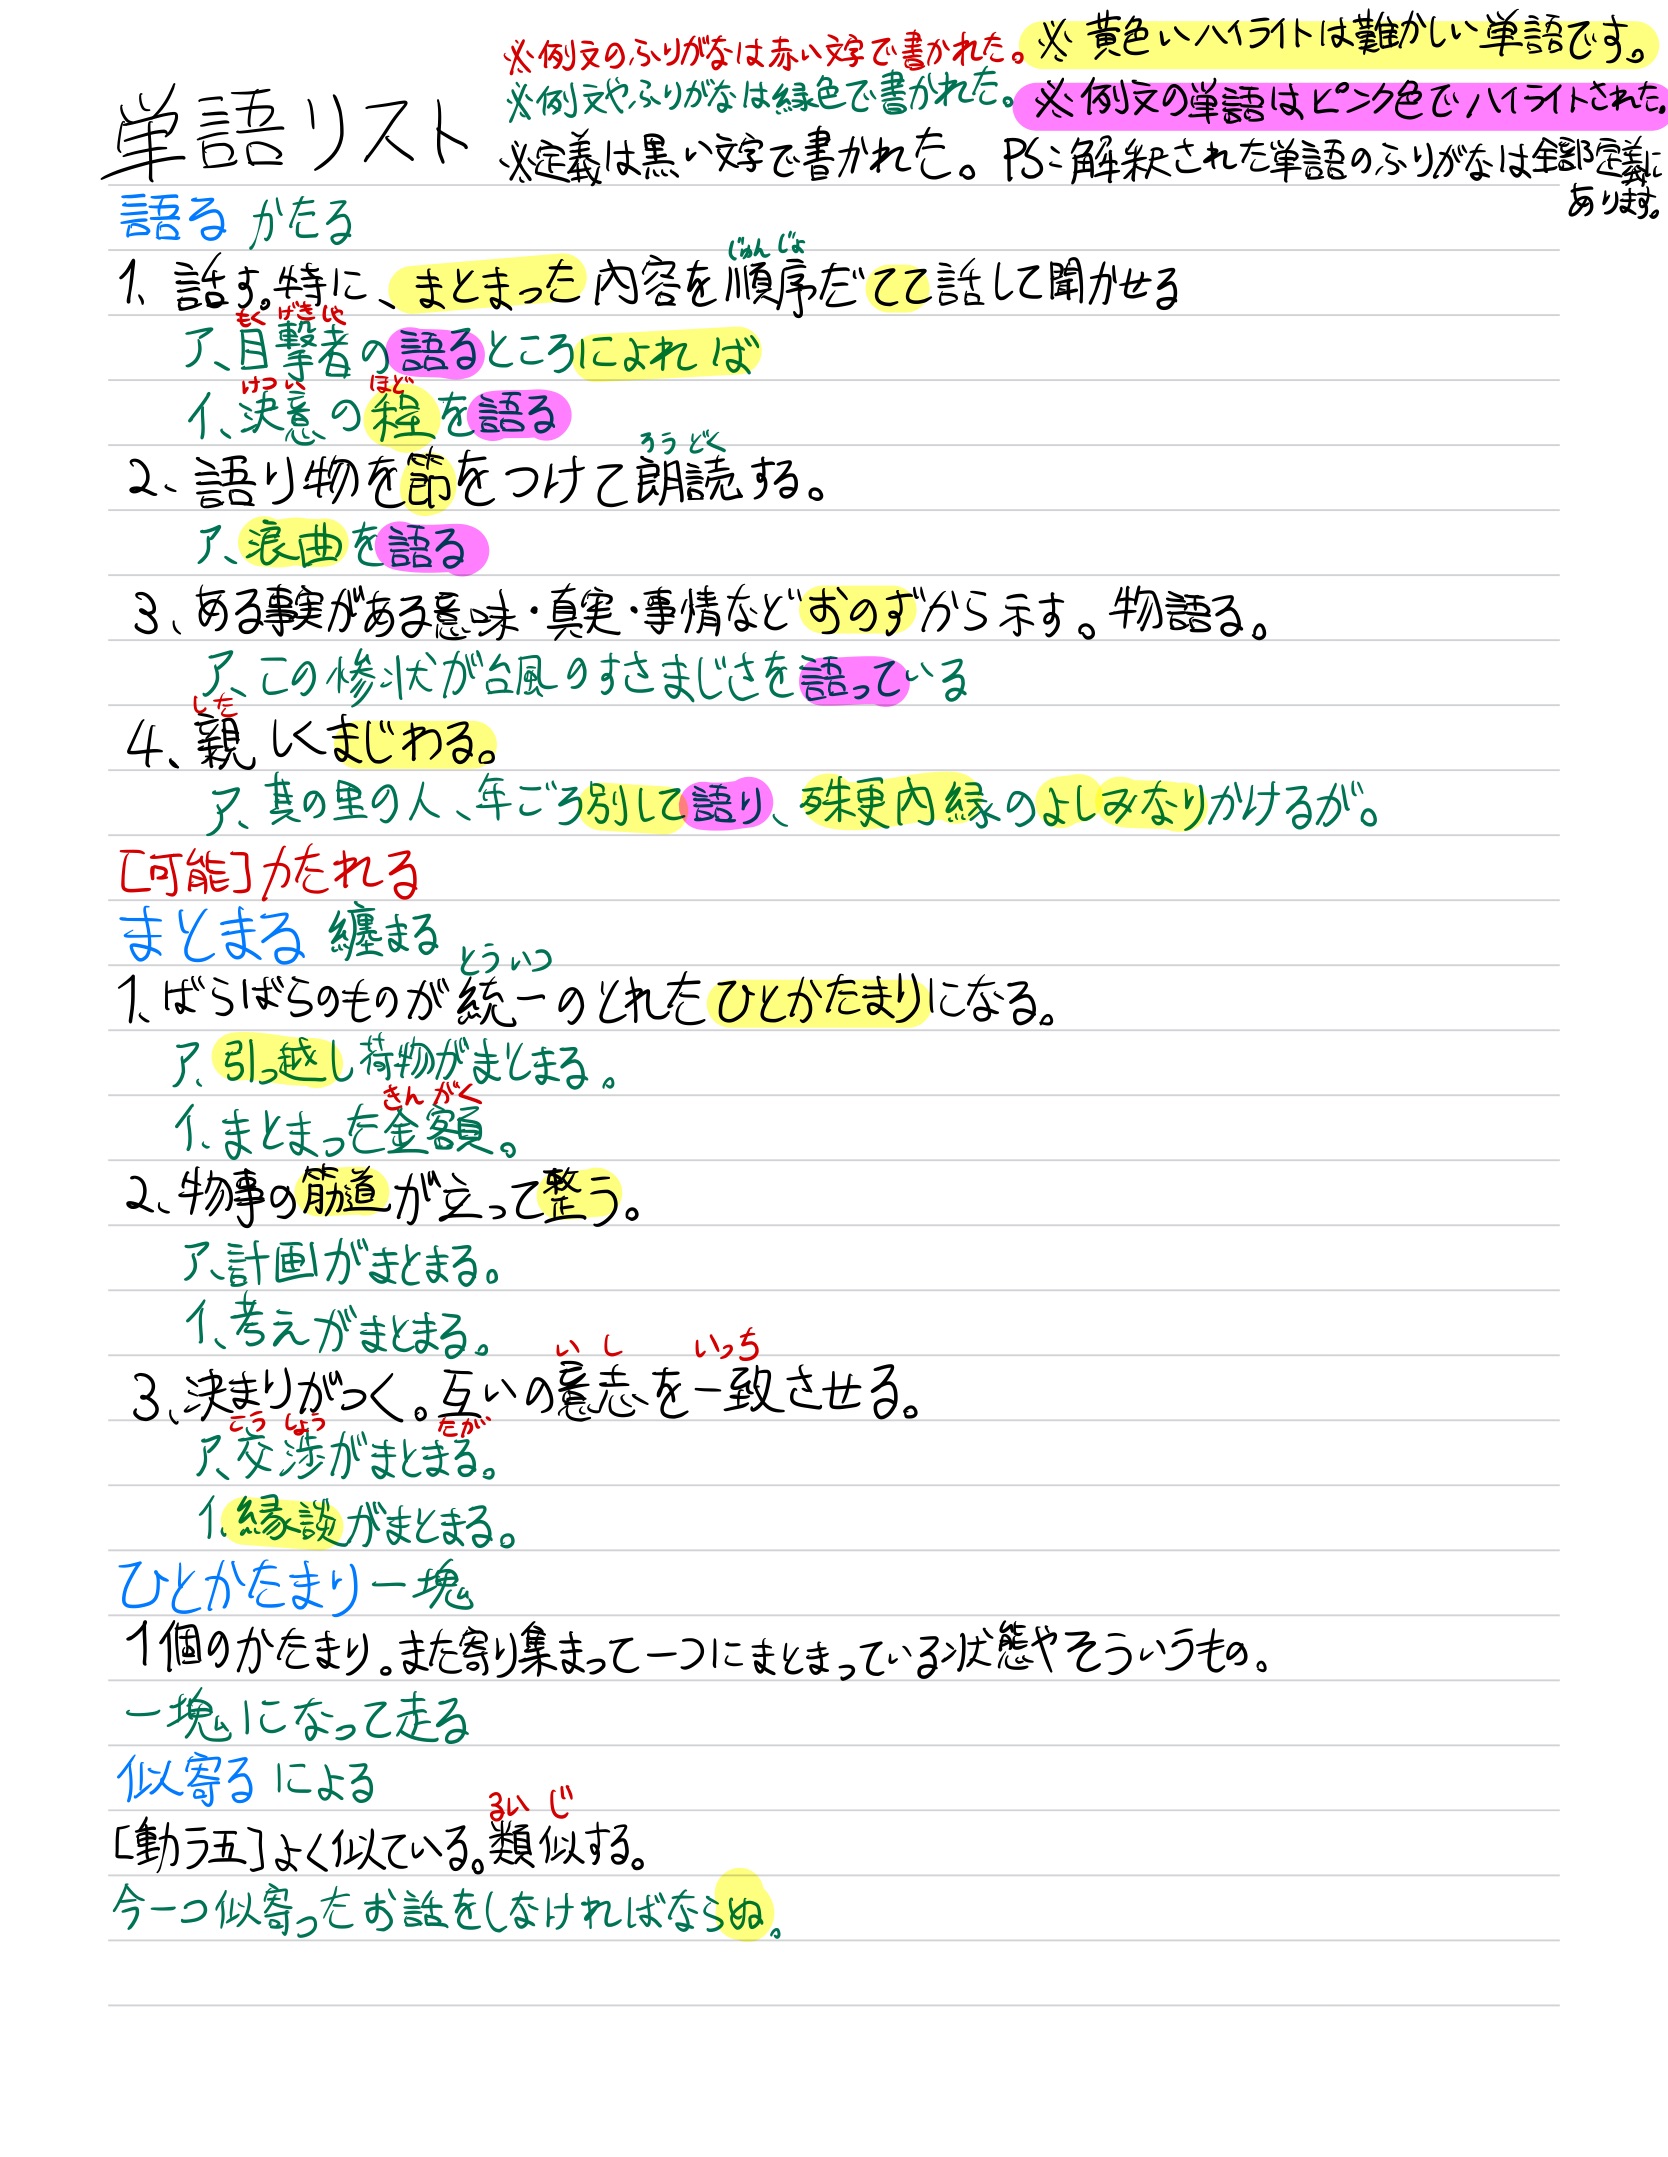 ※例文のふりがなは赤い文字で書かれた。
※黄色いハイライトは難かしい単語です。
※例文やふりがなは緑色で書かれた。
※例文の単語はピンク色でハイライトされた。
単語リスト
※定義は黒い文字で書かれた。 PS:解釈された単語のふりがなは全部定義に
あります。
語る かたる
じゅんじょ
1、話す。特に、まとまった内容を順序だてて話して聞かせる
もくげきしゃ
ア、目撃者の語るところによれば
けつい ほど
イ、決意の程を語る
ろうどく
2、語り物を節をつけて朗読する。
ア、浪曲を語る
3、ある事実がある意味・真実・事情などおのずから示す。物語る。
ア、この惨状が台風のすさまじさを語っている
した
4、親しくまじわる。
ア、其の里の人、年ごろ別して語り、殊更内縁のよしみなりかけるが。
[可能]かたれる
まとまる 纏まる
とういつ
1、ばらばらのものが統一のとれたひとかたまりになる。
ア、引っ越し荷物がまとまる。
きんがく
イ、まとまった金額。
2、物事の筋道が立って整う。
ア、計画がまとまる。
イ、考えがまとまる。
いし いっち
3、決まりがつく。互いの意志を一致させる。
こうしょう たが
ア、交渉がまとまる。
イ、縁談がまとまる。
ひとかたまり 一塊
1個のかたまり。また寄り集まって一つにまとまっている状態やそういうもの。
一塊になって走る
似寄る による
るいじ
[動ラ五]よく似ている。類似する。
今一つ似寄ったお話をしなければならぬ。